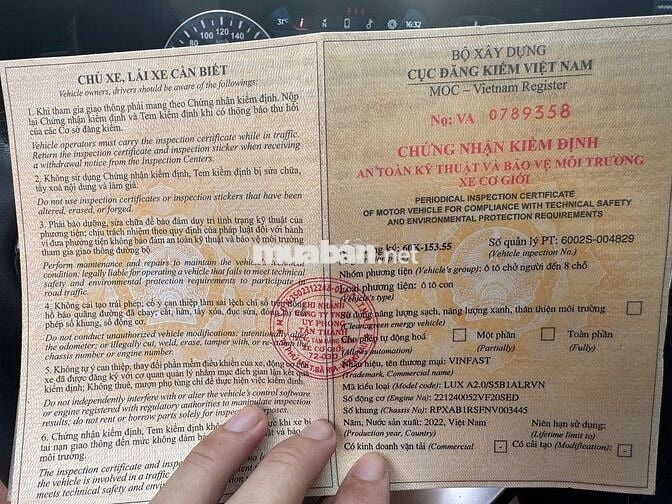 31°C
16:32
80 100 120 140
CHỦ XE, LÁI XE CẦN BIẾT
Vehicle owners, drivers should be aware of the followings:
1. Khi tham gia giao thông phải mang theo Chứng nhận kiểm định. Nộp
lại Chứng nhận kiểm định và Tem kiểm định khi có thông báo thu hồi
của các Cơ sở đăng kiểm.
Vehicle operators must carry the inspection certificate while in traffic.
Return the inspection certificate and inspection sticker when receiving
a withdrawal notice from the Inspection Centers.
2. Không sử dụng Chứng nhận kiểm định, Tem kiểm định bị sửa chữa,
tẩy xoá nội dung và làm giả.
Do not use inspection certificates or inspection stickers that have been
altered, erased, or forged.
3. Phải bảo dưỡng, sửa chữa để bảo đảm duy trì tình trạng kỹ thuật của
phương tiện; chịu trách nhiệm theo quy định của pháp luật đối với hành
vi đưa phương tiện không bảo đảm an toàn kỹ thuật và bảo vệ môi trường
tham gia giao thông đường bộ.
Perform maintenance and repairs to maintain the vehicle's technical
condition; legally liable for operating a vehicle that fails to meet technical
safety and environmental protection requirements to participate in
road traffic.
4. Không cải tạo trái phép; cố ý can thiệp làm sai lệch chỉ số trên đồng
hồ báo quãng đường đã chạy; cắt, hàn, tẩy xóa, đục sửa, đóng lại
phép số khung, số động cơ.
Do not conduct unauthorized vehicle modifications; intentionally
the odometer; or illegally cut, weld, erase, tamper with, or re-
chassis number or engine number.
5. Không tự ý can thiệp, thay đổi phần mềm điều khiển của xe, động cơ
xe đã được đăng ký với cơ quan quản lý nhằm mục đích gian lận kết quả
kiểm định; Không thuê, mượn phụ tùng chỉ để thực hiện việc kiểm định.
Do not independently interfere with or alter the vehicle's control software
or engine registered with regulatory authorities to manipulate inspection
results; do not rent or borrow parts solely for inspection
6. Chứng nhận kiểm định, Tem kiểm định không khi xe bị
tai nạn giao thông đến mức không đảm bảo
môi trường.
The inspection certificate and inspection
the vehicle is involved in a traffic
technical safety and environmental
BỘ XÂY DỰNG
CỤC ĐĂNG KIỂM VIỆT NAM
MOC – Vietnam Register
No: VA 0789358
CHỨNG NHẬN KIỂM ĐỊNH
AN TOÀN KỸ THUẬT VÀ BẢO VỆ MÔI TRƯỜNG
XE CƠ GIỚI
PERIODICAL INSPECTION CERTIFICATE
OF MOTOR VEHICLE FOR COMPLIANCE WITH TECHNICAL SAFETY
AND ENVIRONMENTAL PROTECTION REQUIREMENTS
ký: 60K-153.55 Số quản lý PT: 6002S-004829
(Vehicle inspection No.)
Nhóm phương tiện (Vehicle's group): ô tô chở người đến 8 chỗ
Loại phương tiện: ô tô con
(Vehicle's type)
Sử dụng năng lượng sạch, năng lượng xanh, thân thiện môi trường
(Clean, green energy vehicle)
Cho phép tự động hoá Một phần Toàn phần
(Allows automation) (Partially) (Fully)
Nhãn hiệu, tên thương mại: VINFAST
(Trademark, Commercial name)
Mã kiểu loại (Model code): LUX A2.0/S5B1ALRVN
Số động cơ (Engine No): 221240052VF20SED
Số khung (Chassis No): RPXAB1RSFNV003445
Năm, Nước sản xuất: 2022, Việt Nam Niên hạn sử dụng:
(Production year, Country) (Lifetime limit to)
Có kinh doanh vận tải (Commercial Có cải tạo (Modification):
muaban.net